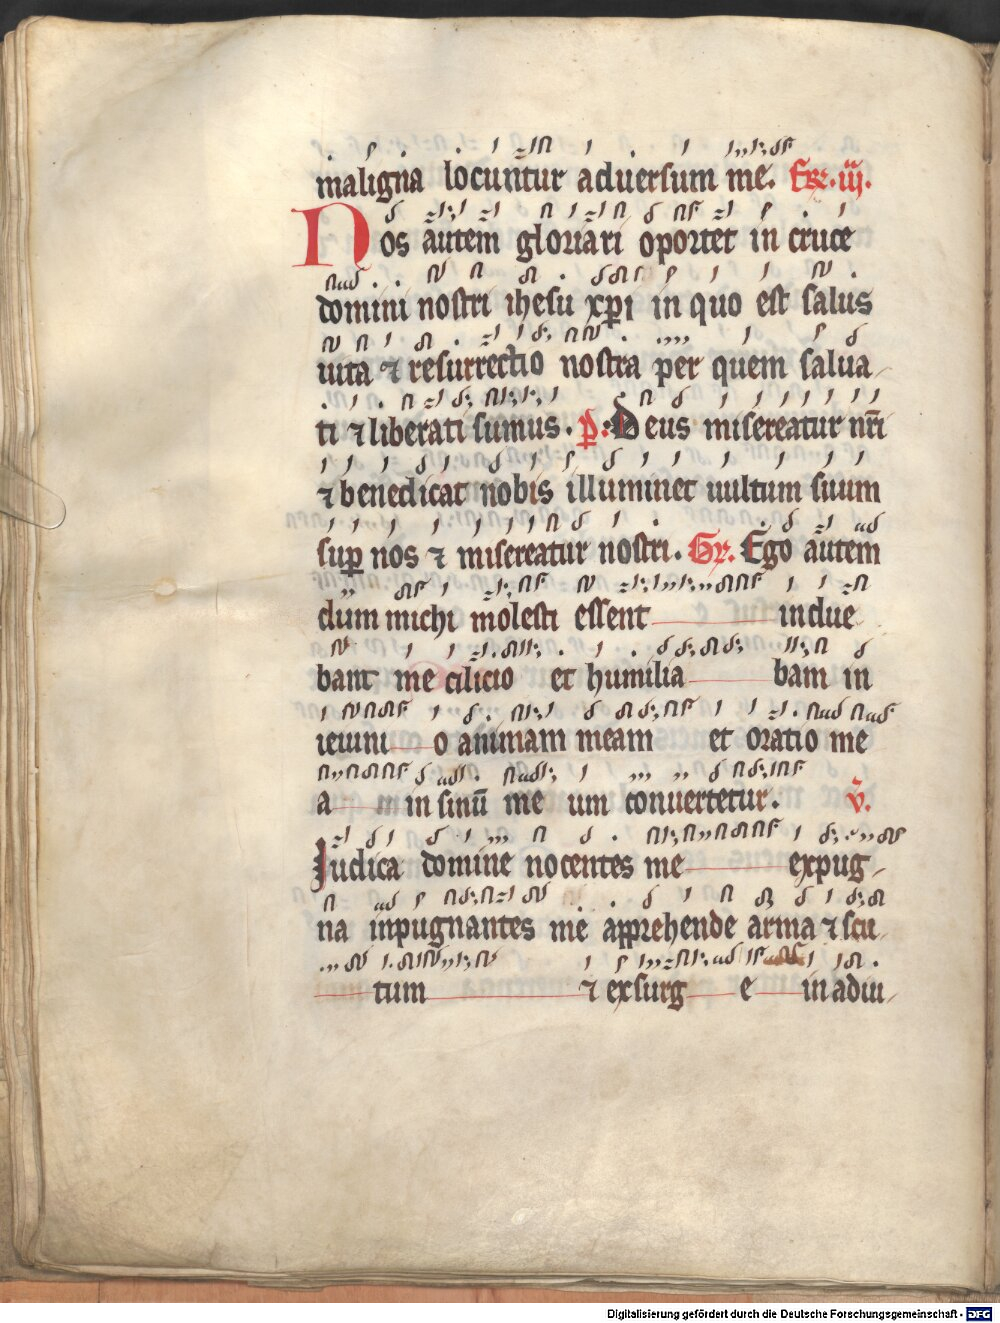 maligna locuntur aduersum me. Fer. iij.
Nos autem gloriari oportet in cruce
domini nostri ihesu xpi in quo est salus
uita ⁊ resurrectio nostra per quem salua
ti ⁊ liberati sumus. p̄. Deus misereatur nr̄i
⁊ benedicat nobis illuminet uultum suum
sup nos ⁊ misereatur nostri. Gr. Ego autem
dum michi molesti essent indue
bant me cilicio et humilia bam in
ieiuni o animam meam et oratio me
a in sinū me um conuertetur. V.
Judica domine nocentes me expug
na inpugnantes me apprehende arma ⁊ scu
tum ⁊ exsurg e in adiu
Digitalisierung gefördert durch die Deutsche Forschungsgemeinschaft - DFG